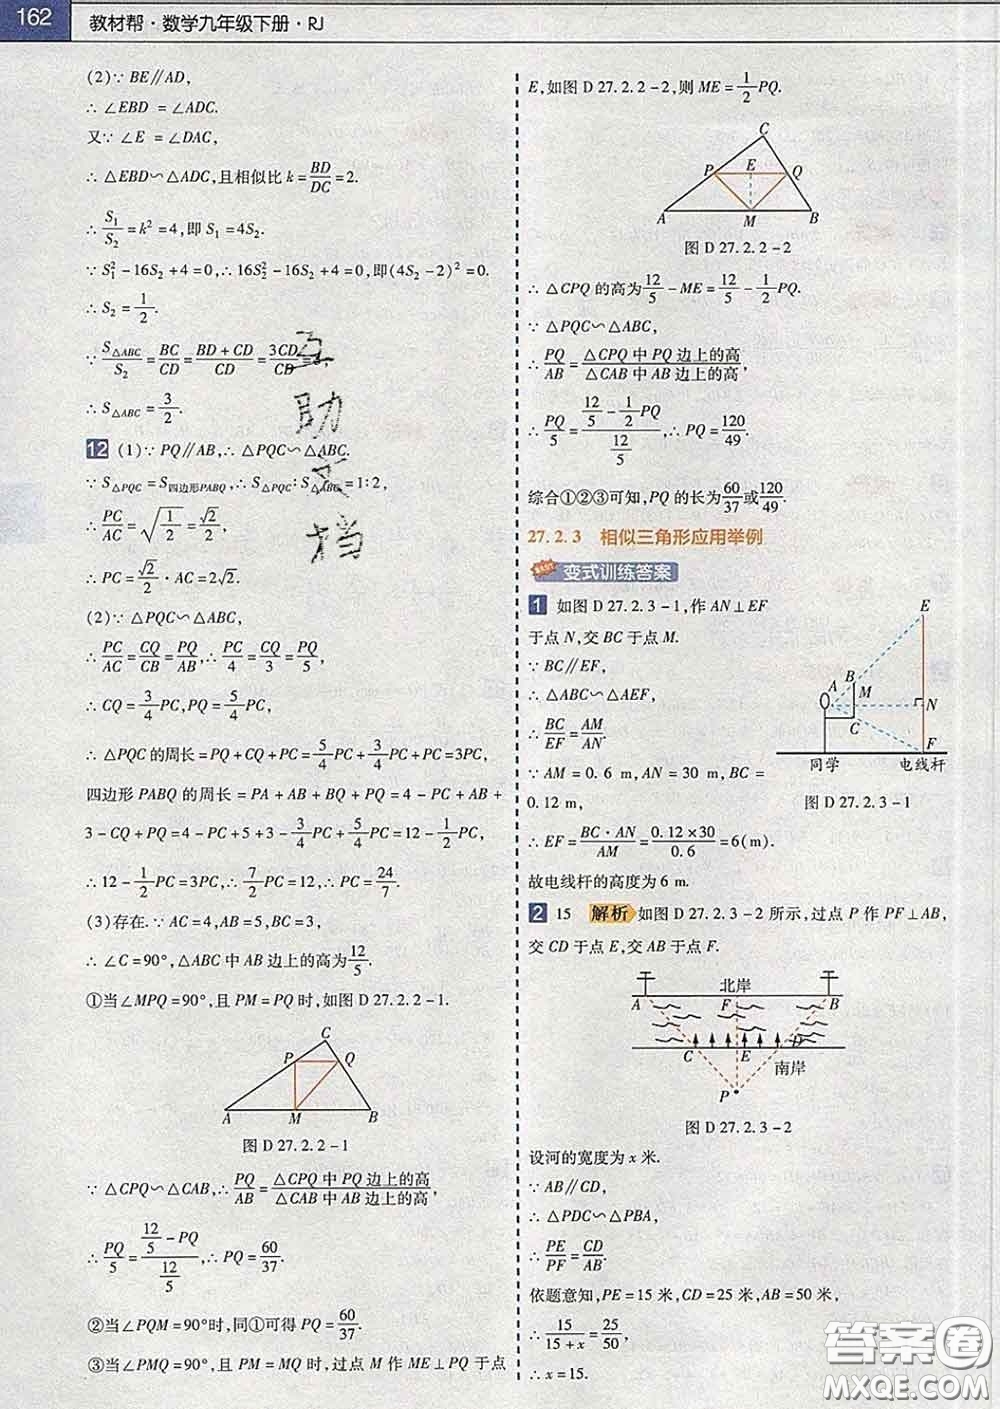 162 教材帮·数学九年级下册·RJ
(2)∵ BE∥AD,
∴ ∠EBD = ∠ADC.
又∵ ∠E = ∠DAC,
∴ △EBD∽△ADC,且相似比 k=BD/DC=2.
∴ S₁/S₂=k²=4,即 S₁=4S₂.
∵ S₁²-16S₂+4=0,∴ 16S₂²-16S₂+4=0,即(4S₂-2)²=0.
∴ S₂=1/2.
∵ S△ABC/S₂=BC/CD=(BD+CD)/CD=3CD/CD
∴ S△ABC=3/2.
12 (1)∵ PQ∥AB,∴ △PQC∽△ABC.
∵ S△PQC=S四边形PABQ,∴ S△PQC∶S△ABC=1∶2,
∴ PC/AC=√(1/2)=√2/2,
∴ PC=√2/2·AC=2√2.
(2)∵ △PQC∽△ABC,
∴ PC/AC=CQ/CB=PQ/AB,∴ PC/4=CQ/3=PQ/5,
∴ CQ=3/4PC,PQ=5/4PC,
∴ △PQC的周长=PQ+CQ+PC=5/4PC+3/4PC+PC=3PC,
四边形 PABQ 的周长=PA+AB+BQ+PQ=4-PC+AB+
3-CQ+PQ=4-PC+5+3-3/4PC+5/4PC=12-1/2PC,
∴ 12-1/2PC=3PC,∴ 7/2PC=12,∴ PC=24/7.
(3)存在.∵ AC=4,AB=5,BC=3,
∴ ∠C=90°,△ABC 中 AB 边上的高为12/5.
①当∠MPQ=90°,且 PM=PQ 时,如图 D 27.2.2-1.
C
P Q
A M B
图 D 27.2.2-1
∵ △CPQ∽△CAB,∴ PQ/AB=△CPQ 中 PQ 边上的高/△CAB 中 AB 边上的高,
∴ PQ/5=(12/5-PQ)/(12/5),∴ PQ=60/37.
②当∠PQM=90°时,同①可得 PQ=60/37.
③当∠PMQ=90°,且 PM=MQ 时,过点 M 作 ME⊥PQ 于点
E,如图 D 27.2.2-2,则 ME=1/2PQ.
C
P E Q
A M B
图 D 27.2.2-2
∴ △CPQ 的高为12/5-ME=12/5-1/2PQ.
∵ △PQC∽△ABC,
∴ PQ/AB=△CPQ 中 PQ 边上的高/△CAB 中 AB 边上的高,
∴ PQ/5=(12/5-1/2PQ)/(12/5),∴ PQ=120/49.
综合①②③可知,PQ 的长为60/37或120/49.
27.2.3 相似三角形应用举例
变式训练答案
1 如图 D 27.2.3-1,作 AN⊥EF
于点 N,交 BC 于点 M.
∵ BC∥EF,
∴ △ABC∽△AEF,
∴ BC/EF=AM/AN.
∵ AM=0.6 m,AN=30 m,BC=
0.12 m,
E
B
A M
N
C
F
同学 电线杆
图 D 27.2.3-1
∴ EF=BC·AN/AM=0.12×30/0.6=6(m).
故电线杆的高度为 6 m.
2 15 解析 如图 D 27.2.3-2 所示,过点 P 作 PF⊥AB,
交 CD 于点 E,交 AB 于点 F.
北岸
A F B
C E D
南岸
P
图 D 27.2.3-2
设河的宽度为 x 米.
∵ AB∥CD,
∴ △PDC∽△PBA,
∴ PE/PF=CD/AB.
依题意知,PE=15 米,CD=25 米,AB=50 米,
∴ 15/(15+x)=25/50,
∴ x=15.
互
助
文
档
答案圈
MXQE.COM